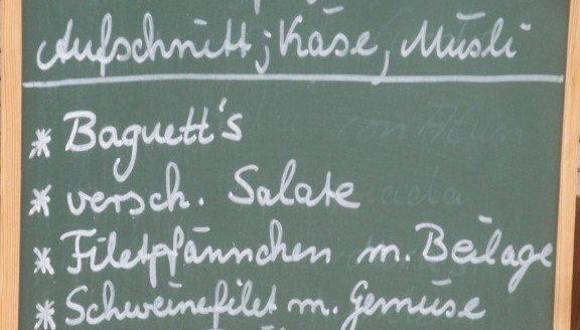 Aufschnitt; Käse, Müsli
* Baguett's
* versch. Salate
* Filetpfännchen m. Beilage
* Schweinefilet m. Gemüse